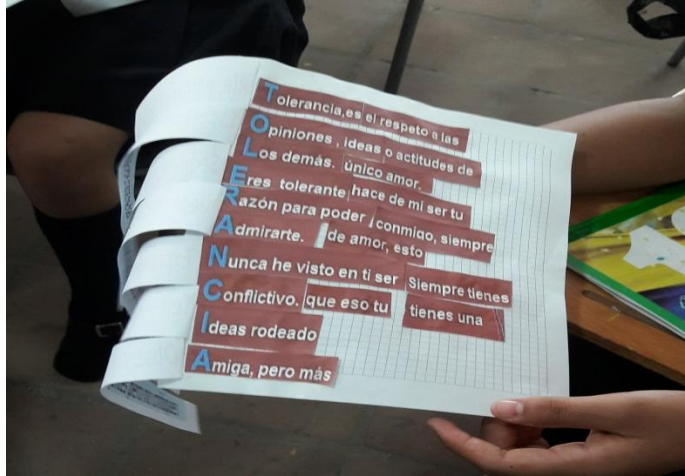 Tolerancia,es el respeto a las
Opiniones , ideas o actitudes de
Los demás. único amor.
Eres tolerante hace de mi ser tu
Razón para poder conmigo, siempre
Admirarte. de amor, esto
Nunca he visto en ti ser Siempre tienes
Conflictivo. que eso tu tienes una
Ideas rodeado
Amiga, pero más